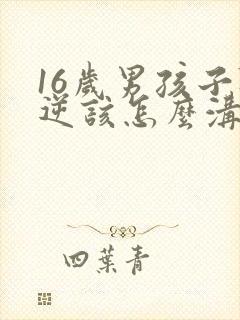 16歲男孩子
逆該怎麼溝
四葉青